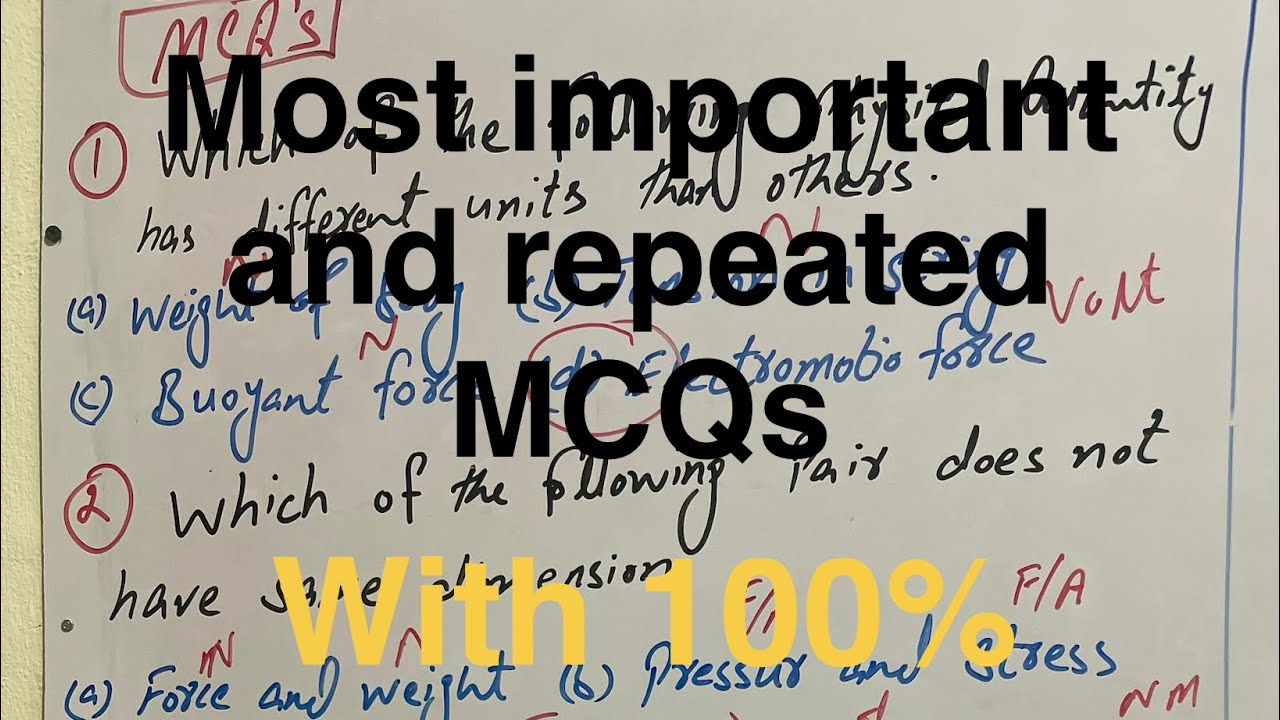 MCQ's
Most important
and repeated
MCQs
With 100%
1 Which of the following Physical Quantity
has different units than others.
N N
(a) Weight of body (b) Tension in string
N Volt
(c) Buoyant force (d) Electromotio force
2 Which of the following Pair does not
have same dimension
N N F/A F/A
(a) Force and weight (b) Pressur and Stress
N M